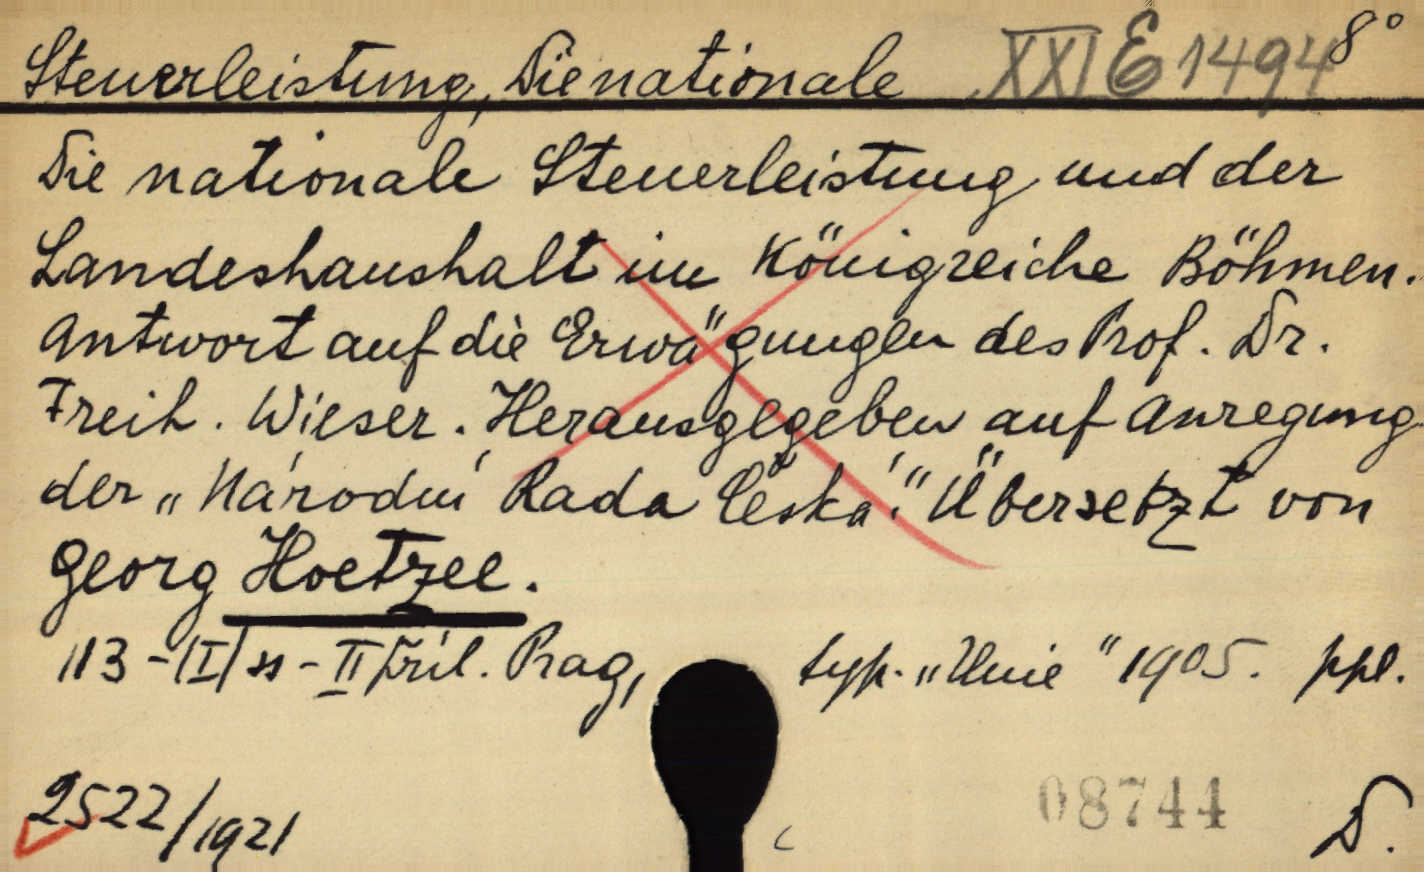 Steuerleistung, Die nationale XXI E 1494 8°
Die nationale Steuerleistung und der
Landeshaushalt im Königreiche Böhmen.
Antwort auf die Erwägungen des Prof. Dr.
Freih. Wieser. Herausgegeben auf Anregung
der „Národní Rada Česká." Übersetzt von
Georg Hoetzel.
113-(I) ss - II příl. Prag, typ. „Unie" 1905. ppl.
2522/1921
08744 D.